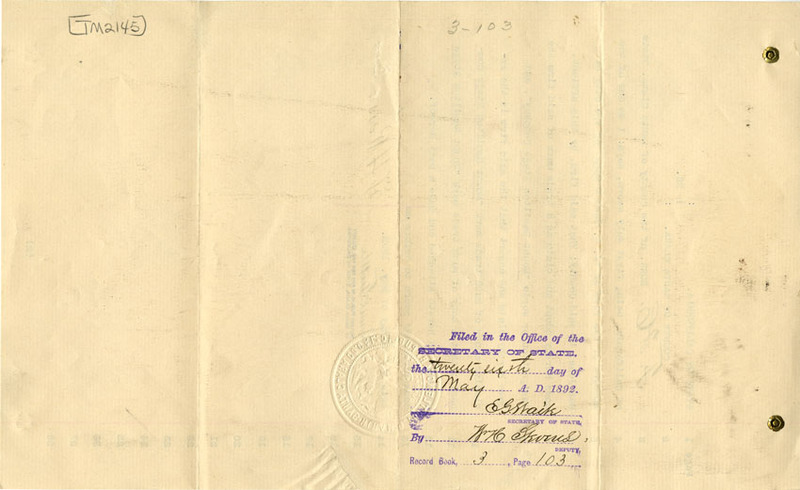 [TM2145]
3-103
Filed in the Office of the
SECRETARY OF STATE,
the twenty sixth day of
May A. D. 1892.
E G Waite
SECRETARY OF STATE,
By W H
DEPUTY,
Record Book, 3, Page 103